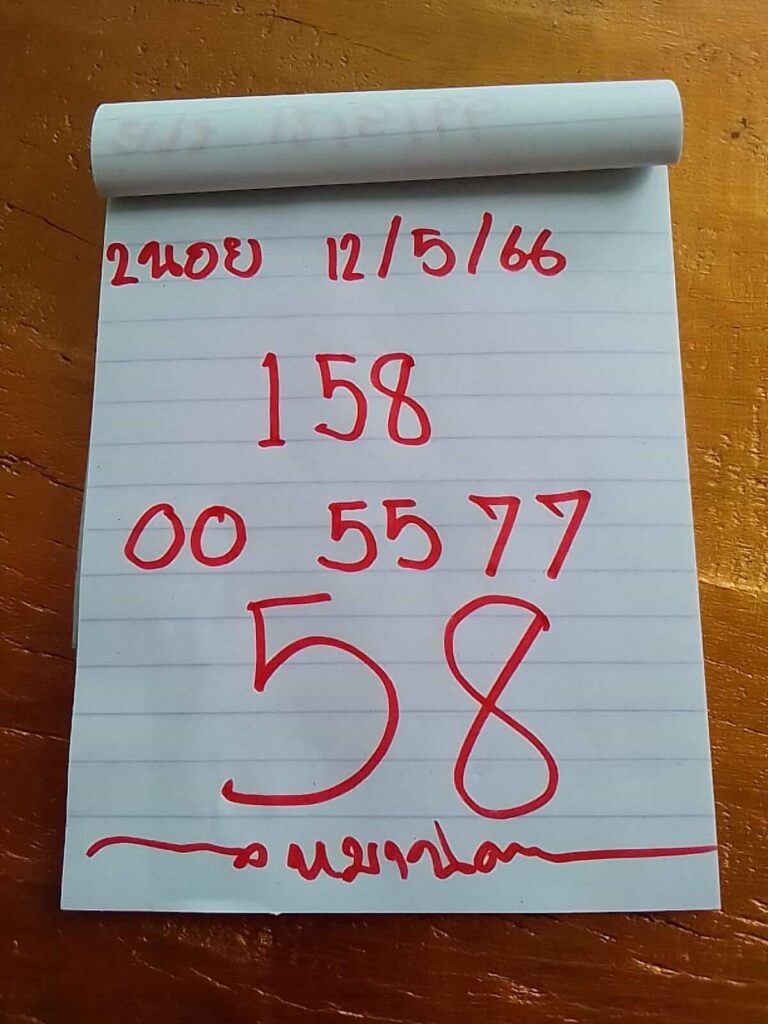 ฮานอย 12/5/66
158
00 55 77
58